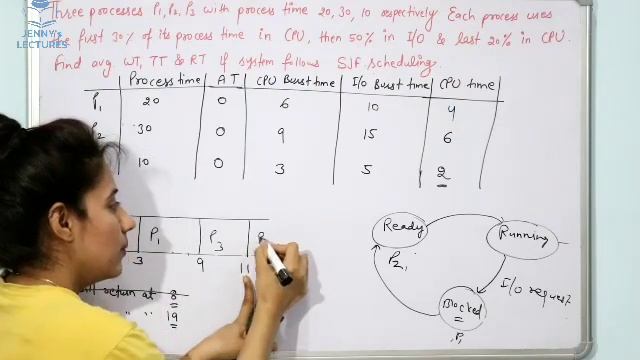 JENNY's
LECTURES
Three processes P1, P2, P3 with process time 20, 30, 10 respectively. Each process uses
the first 30% of its process time in CPU, then 50% in I/O & last 20% in CPU.
Find avg. WT, TT & RT if system follows SJF scheduling.
Process time AT CPU Burst time I/O Burst time CPU time
P1 20 0 6 10 4
P2 30 0 9 15 6
10 0 3 5 2
P1 P3
3 9 11
Ready Running
P2,
I/O request
Blocked
P1
return at 8
" " 19